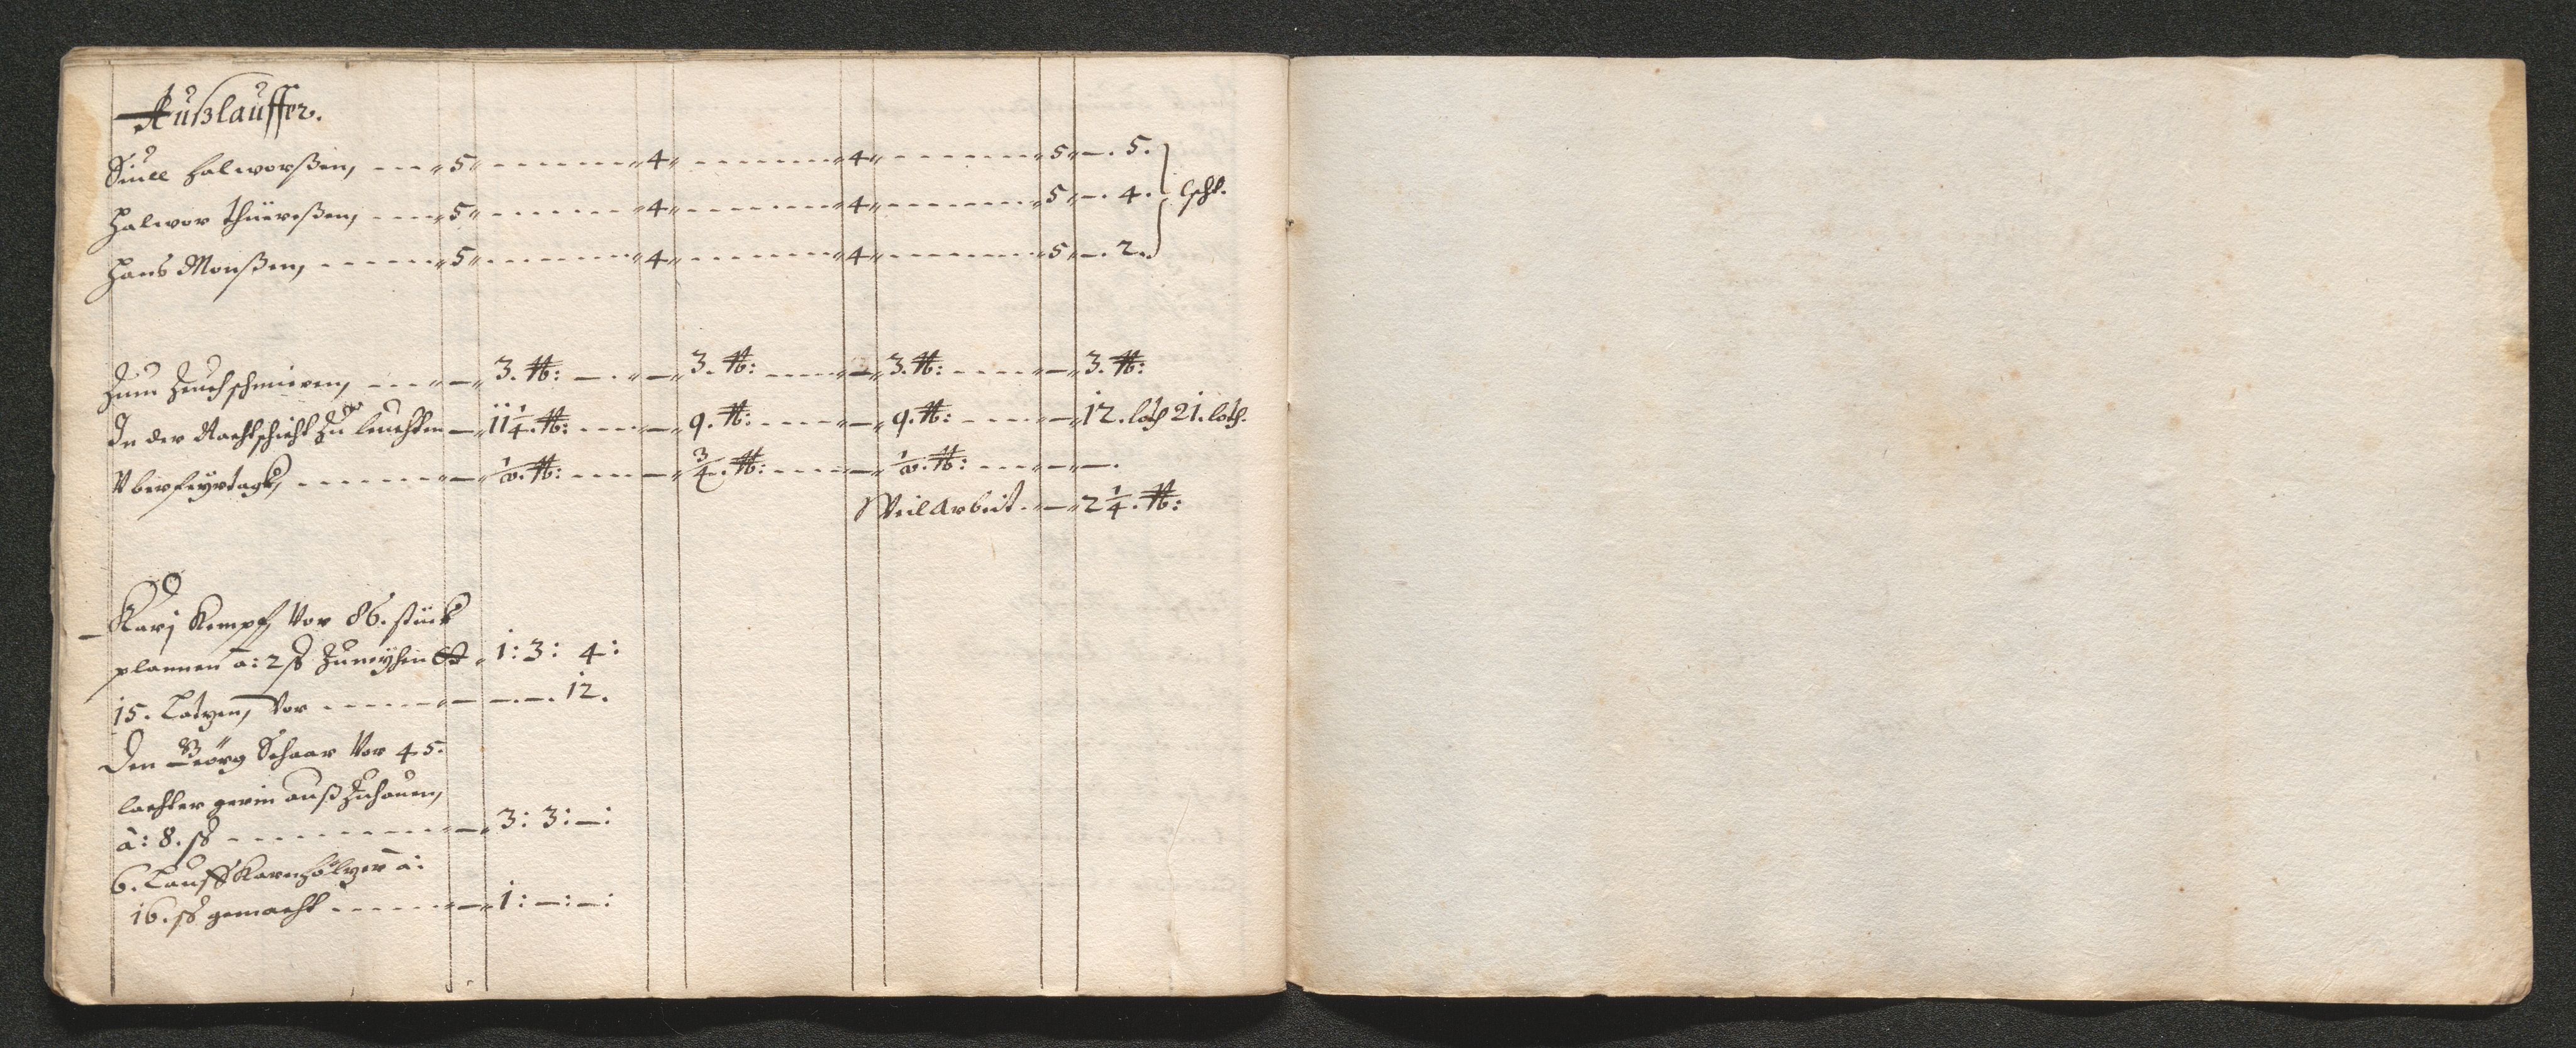 Außlauffer.
Siull Halworßen, - - - „ 5 „ - - - - - „ 4 „ - - - - - „ 4 „ - - - - - „ 5 „ —. 5.
Halwor Thüereßen, - - - „ 5 „ - - - - - „ 4 „ - - - - - „ 4 „ - - - - - „ 5 „ —. 4. Schl.
Hans Monßen, - - - - „ 5 „ - - - - - „ 4 „ - - - - - „ 4 „ - - - - - „ 5 „ —. 2.
Zum Zeuch schmieren, - - - „ — „ 3. ℔: — . „ — „ 3. ℔: - - - „ — „ 3. ℔: - - - „ — „ 3. ℔:
In der Nachtschicht zu leuchten — „ 11 1/4. ℔: - - - „ — „ 9. ℔: - - - „ — „ 9. ℔: - - - „ — „ 12. loth 21. loth.
Vber feyertagk, - - - - - „ — „ ℔: - - - - — „ 3/4. ℔: - - - - „ — „ ℔: - - - „ — „ —.
Weil Arbeit. „ — „ 2 1/4. ℔:
Karj Kempf, Vor 86. stück
plannen à: 2 ß Zuneyhen „ 1: 3: 4:
15. Latzen, Vor - - - - - „ — —.—. 12.
Den Georg Schaar Vor 45.
lachter gerin auß Zuhauen,
à: 8. ß - - - - - - - „ — „ 3: 3: —:
6. Lauff Karnhöltzer à:
16. ß gemacht - - - - - „ — „ 1: —: —: